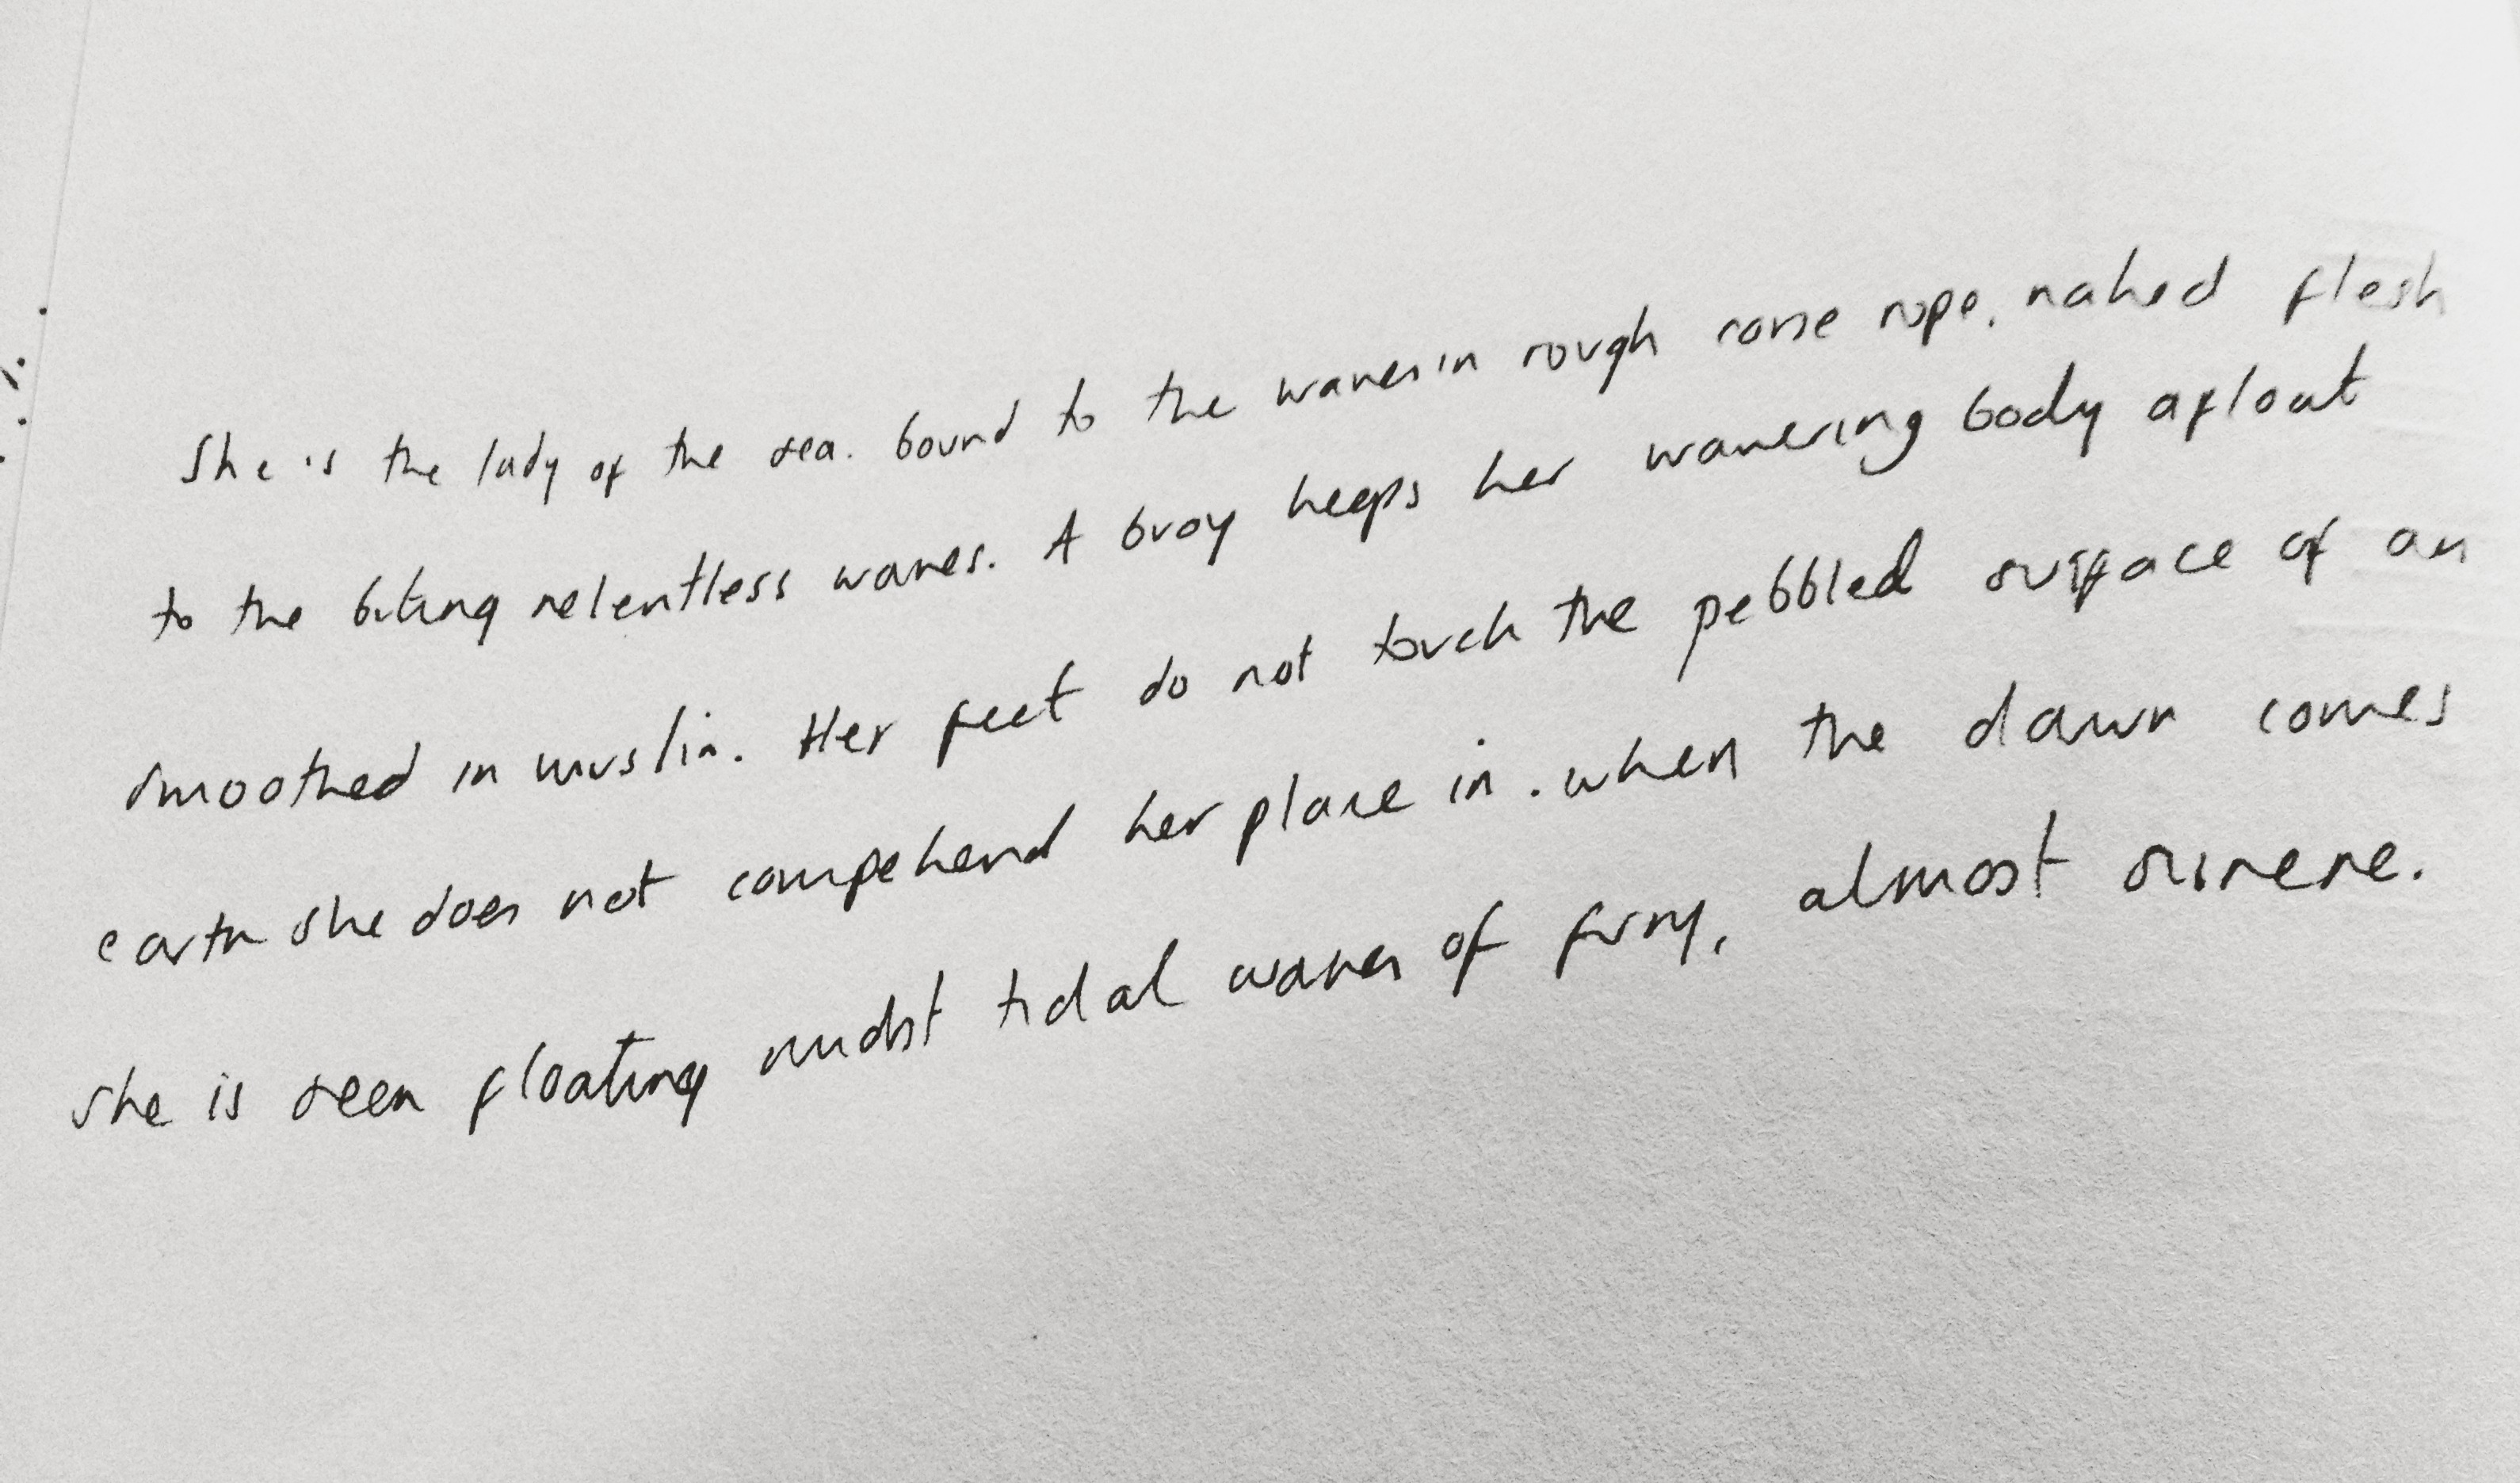 She is the lady of the sea. bound to the waves in rough corse rope. naked flesh
to the biting relentless waves. A buoy keeps her wavering body afloat
smoothed in muslin. Her feet do not touch the pebbled surface of an
earth she does not compehend her place in. when the dawn comes
she is seen floating midst tidal waves of fury, almost